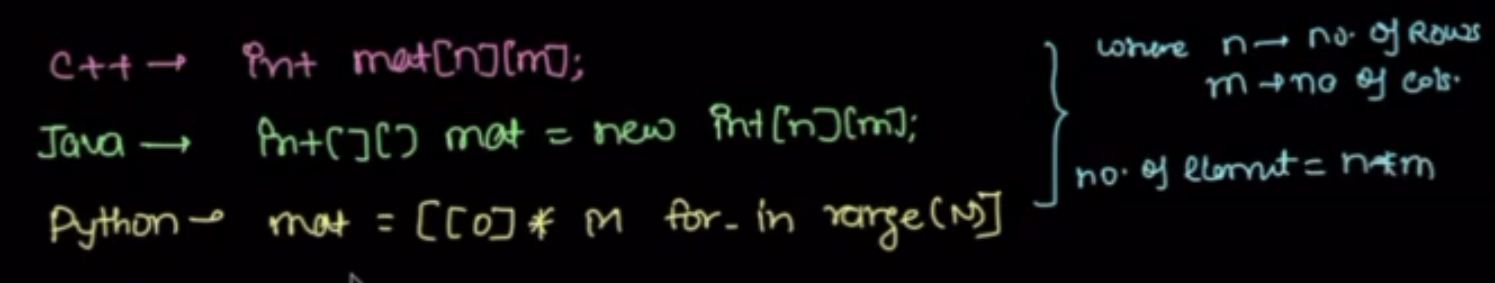 C++ → int mat[n][m];
Java → int[][] mat = new int[n][m];
Python → mat = [[0] * M for _ in range(N)]
where n → no. of Rows
m → no of cols.
no. of elemnt = n*m